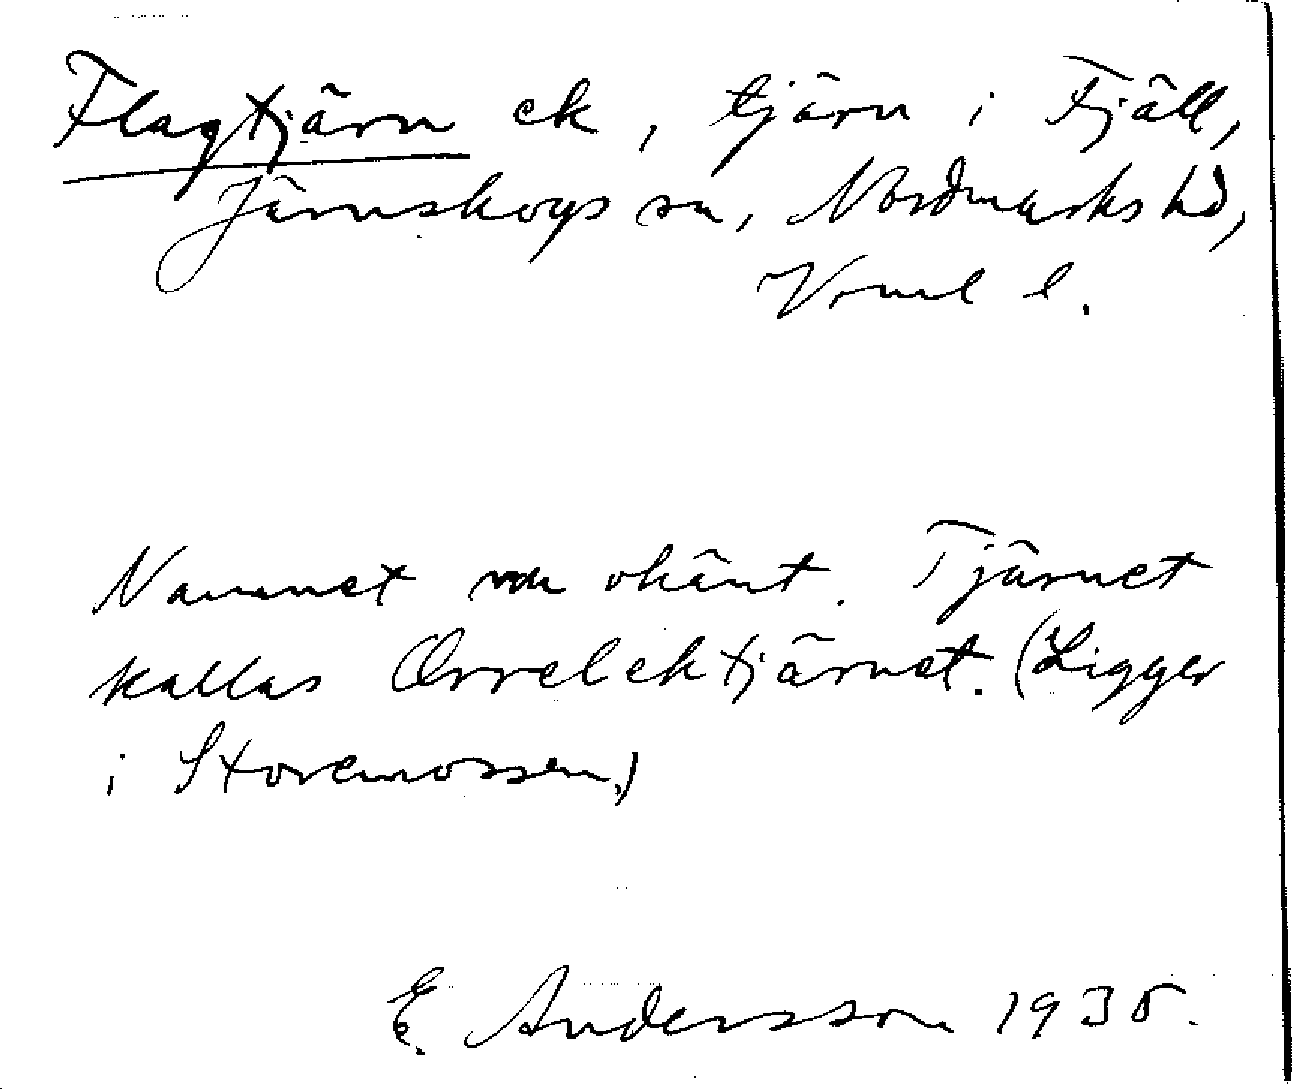 Flagtjärn ek, tjärn i Fjäll,
Järnskogs sn, Nordmarks hd,
Vrml l.
Namnet nu okänt. Tjärnet
kallas Orrelektjärnet. (Ligger
i Storemossen.)
E. Andersson 1935.